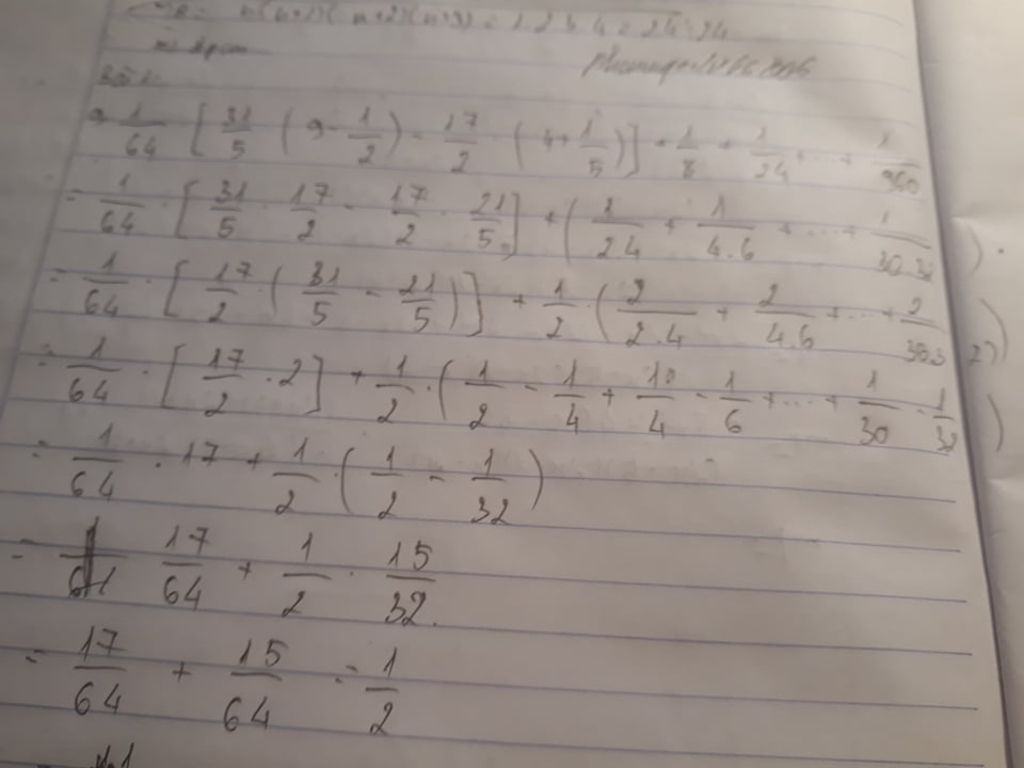 n(n+1)(n+2)(n+3) = 1.2.3.4 = 24
= 1/64 [ 31/5 ( 9 - 1/2 ) - 17/2 . ( 4 + 1/5 ) ] + 1/8 + 1/24 + ... + 1/960
= 1/64 . [ 31/5 . 17/2 - 17/2 . 21/5 ] + ( 1/2.4 + 1/4.6 + ... + 1/30.32 ) .
= 1/64 . [ 17/2 . ( 31/5 - 21/5 ) ] + 1/2 . ( 2/2.4 + 2/4.6 + ... + 2/30.32 )
= 1/64 . [ 17/2 . 2 ] + 1/2 . ( 1/2 - 1/4 + 1/4 - 1/6 + ... + 1/30 - 1/32 )
= 1/64 . 17 + 1/2 . ( 1/2 - 1/32 )
= 17/64 + 1/2 . 15/32
= 17/64 + 15/64 = 1/2